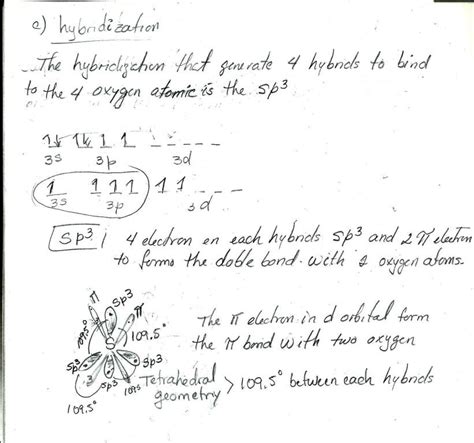 e) hybridization
The hybridization that generate 4 hybrids to bind
to the 4 oxygen atomic is the sp3
1↓ 1↓ 1 1 _ _ _ _ _
3s 3p 3d
1 1 1 1 1 1 _ _ _
3s 3p 3d
sp3 4 electron en each hybrids sp3 and 2 π electron
to forms the doble bond. with 2 oxygen atoms.
π sp3 π
109.5° 109.5°
S
sp3 sp3
sp3
109.5° 109.5
The π electron in d orbital form
the π bond with two oxygen
Tetrahedral geometry > 109.5° between each hybrids